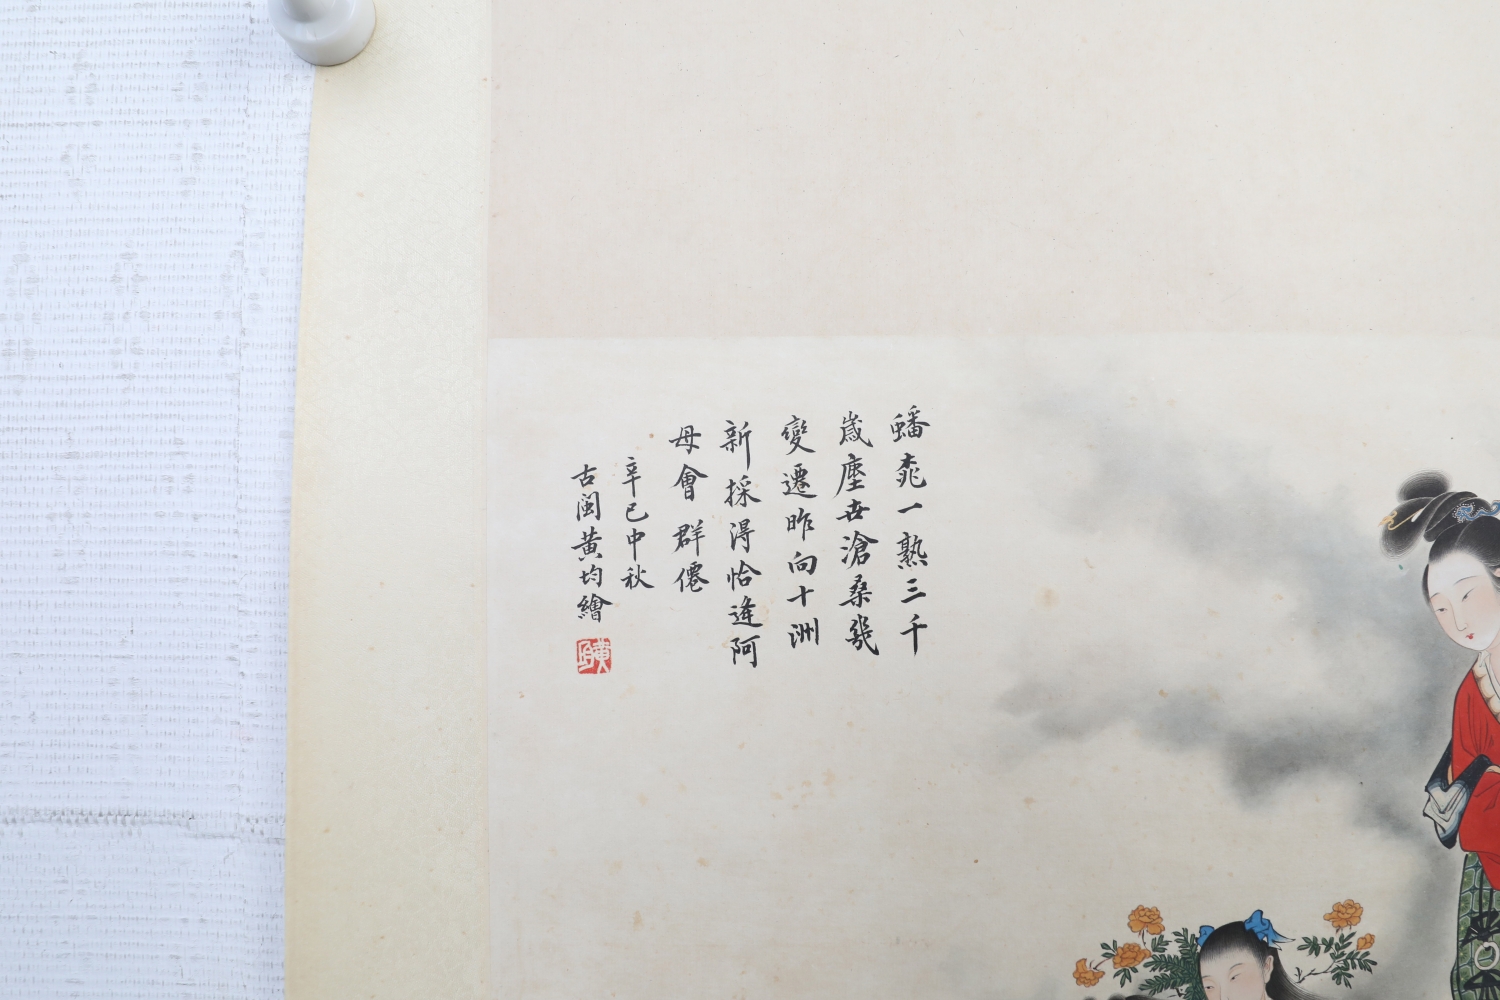 蟠桃一熟三千
歲塵世滄桑幾
變遷昨向十洲
新採得恰逢阿
母會群僊
辛巳中秋
古閩黃均繪
黃均